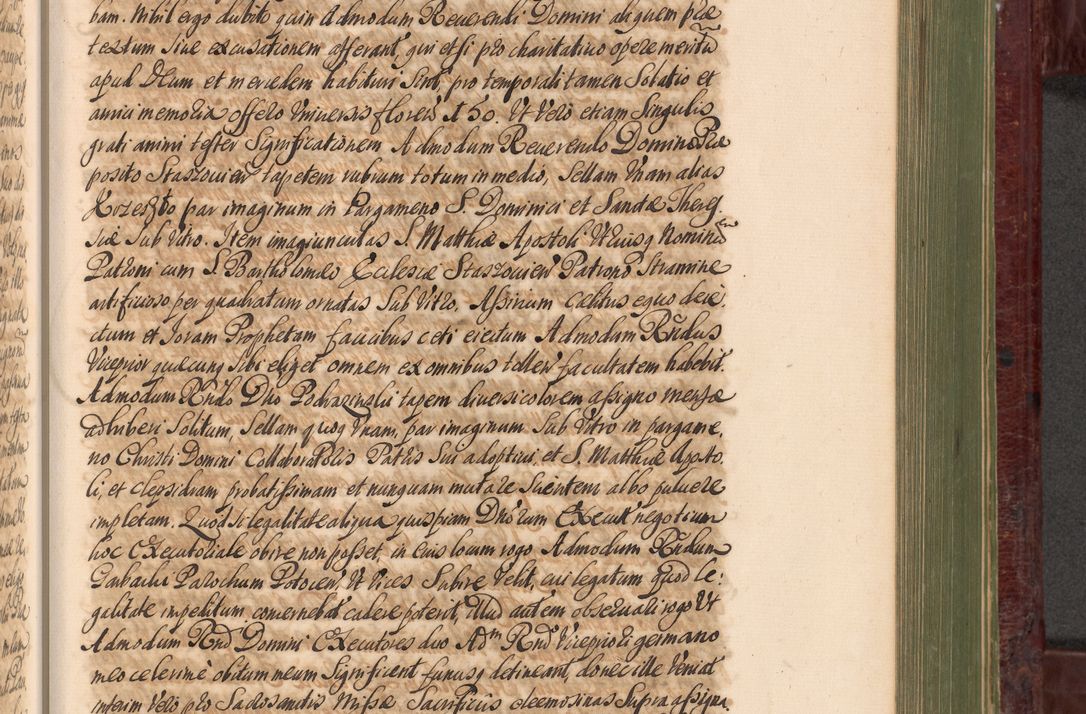 bam. Nihil ergo dubito quin Admodum Reverendi Domini aliquem præ
textum sive excusationem afferant, qui etsi pro charitativo opere meritũ
apud Deum et mercedem habituri sint, pro temporali tamen Solatio et
amici memoria offero Universis florens 150. Ut Vero etiam Singulis
grati animi tester Significationem Admodum Reverendo Domino Præ
posito Staszovien tapetem rubrum totum in medio, Sellam Unam alias
Krzesło par imaginum in Pargameno S. Dominici et Sanctæ There
siæ Sub Vitro. Item imagiunculas S. Matthiæ Apostoli Utriusq Nominis
Patroni cum S. Bartholomæo Ecclesiæ Staszovien Patrono Stramine
artificioso per quadratum ornatas Sub Vitro, Assirium Cælitus equo deie
ctum et Jonam Prophetam faucibus ceti eiectum Admodum Rñdus
Viceprior quæcunq Sibi eliget omnem ex omnibus tollen facultatem habebit.
Admodum Rñdo Dño Podrazinski tapem diversicolorem assigno mensæ
adhiberi Solitum, Sellam quoq Unam, par imaginum Sub Vitro in pargame,
no Christi Domini Collaborantis Patris Sui adoptivi, et S. Matthiæ Aposto,
li, et clepsidram probatissimam et nunquam mutare Scientem albo pulvere
impletam. Quod si legalitate aliqua quispiam Dnorum Execut negotium
hoc Executoriale obire non posset, in eius locum rogo Admodum Rñdum
Garbacki Parochum Potocen, Ut Vices Subire Velit, cui legatum quod le:
galitate impeditum concernebat cedere poterit, Illud autem observari rogo Ut
Admodum Rñd Domini Executores duo Adm Rnd Vicepriori germano
meo celerime obitum meum Significent funusq detineant, donec ille Veniat
interim Vero pro Sacrosanctis Missæ Sacrificiis eleemosinas Supra assigna